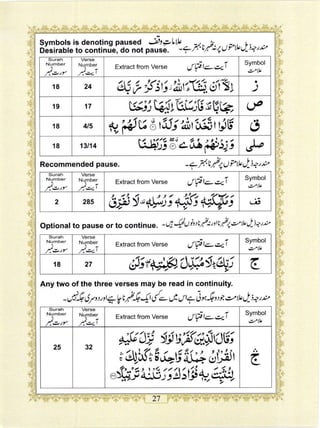 Symbols is denoting paused علامات وقف
Desirable to continue, do not pause. مندرجہ ذیل علامتوں پر نہ ٹھہرنا بہتر ہے۔
Surah Number سورت نمبر
Verse Number آیت نمبر
Extract from Verse آیت سے اقتباس
Symbol علامت
18 24 إِلَّا أَنْ يَشَاءَ اللهُ ز وَاذْكُرْ رَبَّكَ ز
19 17 ص
18 4/5 قَالُوا اتَّخَذَ اللهُ وَلَدًا مَا لَهُمْ بِهِ ق
18 13/14 وَزِدْنَاهُمْ هُدًى وَرَبَطْنَا صلى
Recommended pause. مندرجہ ذیل علامت پر ٹھہرنا بہتر ہے۔
Surah Number سورت نمبر
Verse Number آیت نمبر
Extract from Verse آیت سے اقتباس
Symbol علامت
2 285 وَمَلَائِكَتِهِ وَكُتُبِهِ وَرُسُلِهِ لَا نُفَرِّقُ قف
Optional to pause or to continue.
Surah Number سورت نمبر
Verse Number آیت نمبر
Extract from Verse آیت سے اقتباس
Symbol علامت
18 27 رَبِّكَ لَا مُبَدِّلَ لِكَلِمَاتِهِ وَلَنْ ج
Any two of the three verses may be read in continuity.
Surah Number سورت نمبر
Verse Number آیت نمبر
Extract from Verse آیت سے اقتباس
Symbol علامت
25 32 وَقَالَ الَّذِينَ كَفَرُوا لَوْلَا نُزِّلَ عَلَيْهِ
الْقُرْآنُ جُمْلَةً وَاحِدَةً كَذَٰلِكَ
لِنُثَبِّتَ بِهِ فُؤَادَكَ وَرَتَّلْنَاهُ تَرْتِيلًا
27